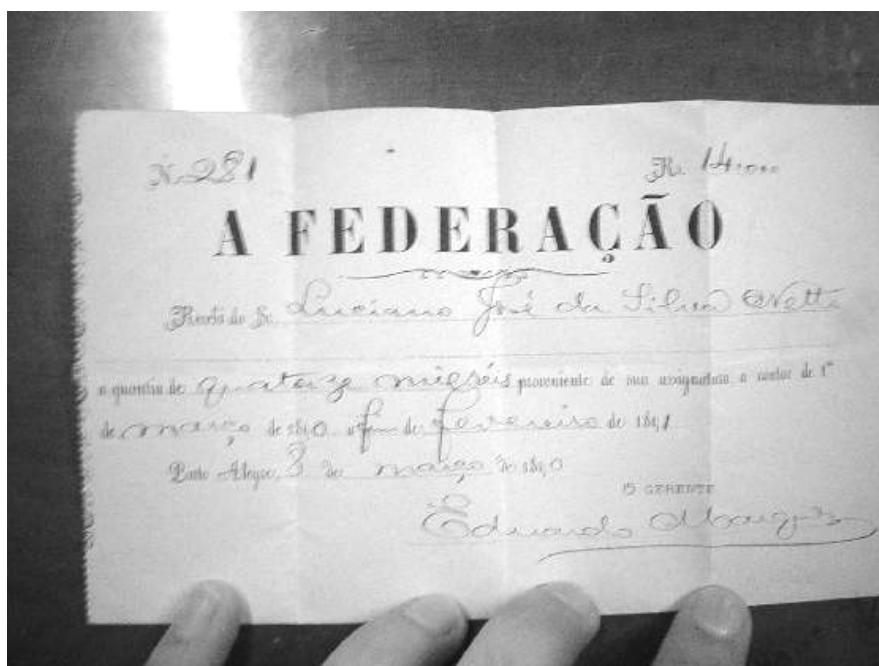 N. 281 Rs. 14:000
A FEDERAÇÃO
Recebi do Sr. Luciano José da Silva Netto
a quantia de quatorze milréis proveniente de sua assignatura a contar de 1º
de março de 1890 a fim de fevereiro de 1891
Porto Alegre, 3 de março de 1890
O GERENTE
Eduardo Marques